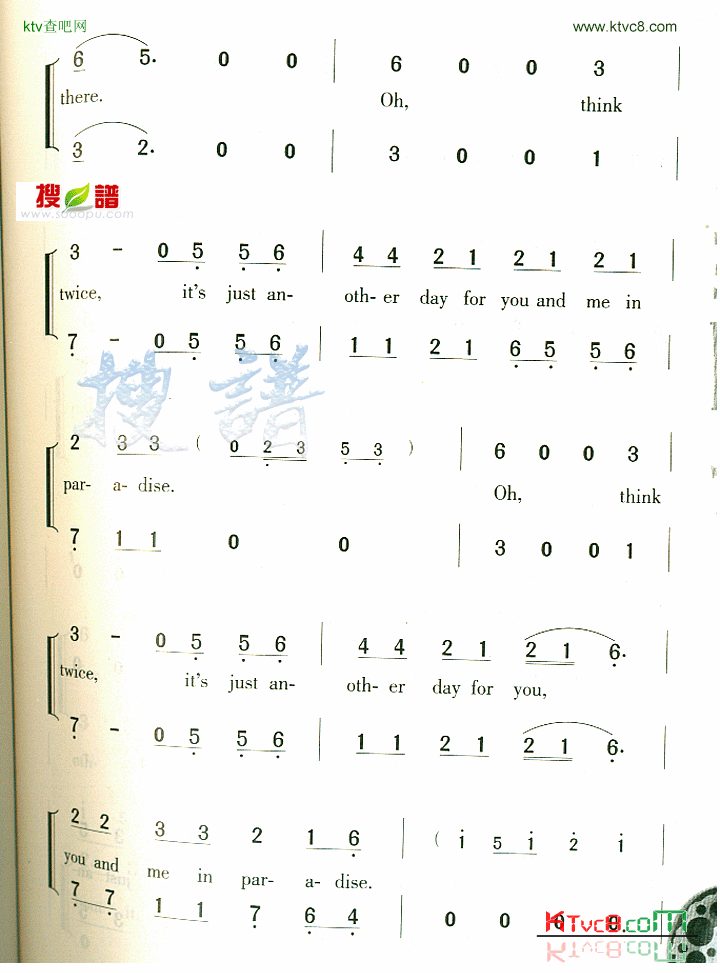 ktv查吧网 www.ktvc8.com
6 5. 0 0 | 6 0 0 3 |
there. Oh, think
3 2. 0 0 | 3 0 0 1 |
搜谱
www.sooopu.com
3 - 0 5 5 6 | 4 4 2 1 2 1 2 1 |
twice, it's just an- oth- er day for you and me in
7 - 0 5 5 6 | 1 1 2 1 6 5 5 6 |
搜谱
2 3 3 ( 0 2 3 5 3 ) | 6 0 0 3 |
par- a- dise. Oh, think
7 1 1 0 0 | 3 0 0 1 |
3 - 0 5 5 6 | 4 4 2 1 2 1 6. |
twice, it's just an- oth- er day for you,
7 - 0 5 5 6 | 1 1 2 1 2 1 6. |
2 2 3 3 2 1 6 | ( i 5 i 2 i |
you and me in par- a- dise.
7 7 1 1 7 6 4 | 0 0 0 0. |
KTvc8.com